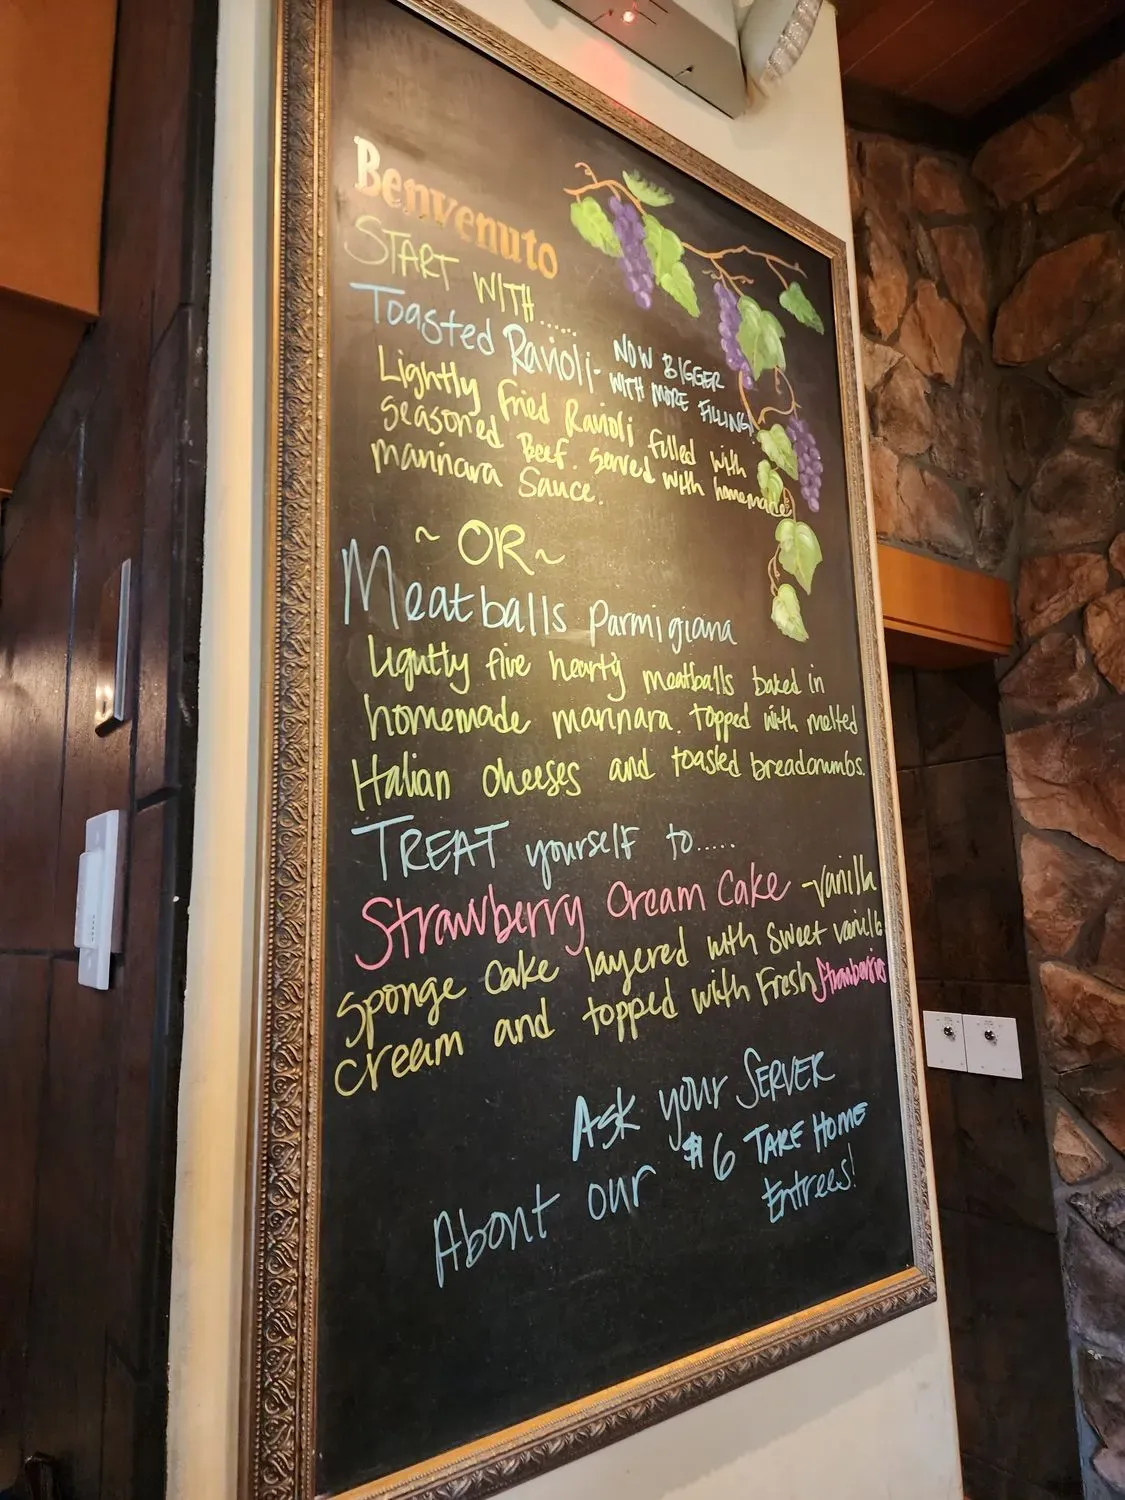 Benvenuto
START WITH......
Toasted Ravioli - NOW BIGGER
WITH MORE FILLING!
Lightly fried Ravioli filled with
seasoned Beef. served with homemade
marinara Sauce.
~ OR ~
Meatballs parmigiana
five hearty meatballs baked in
homemade marinara. topped with melted
Italian cheeses and toasted breadcrumbs.
TREAT yourself to.....
Strawberry Cream Cake - vanilla
Sponge Cake layered with sweet vanilla
cream and topped with Fresh Strawberries
Ask your SERVER
About our $6 TAKE HOME
Entrees!